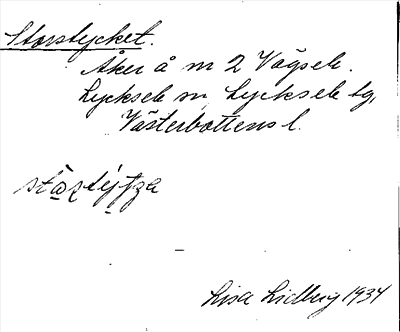 Storstycket.
Åker å nr 2 Vägsele.
Lycksele sn, Lycksele lg,
Västerbottens l.
Lisa Lidberg 1934